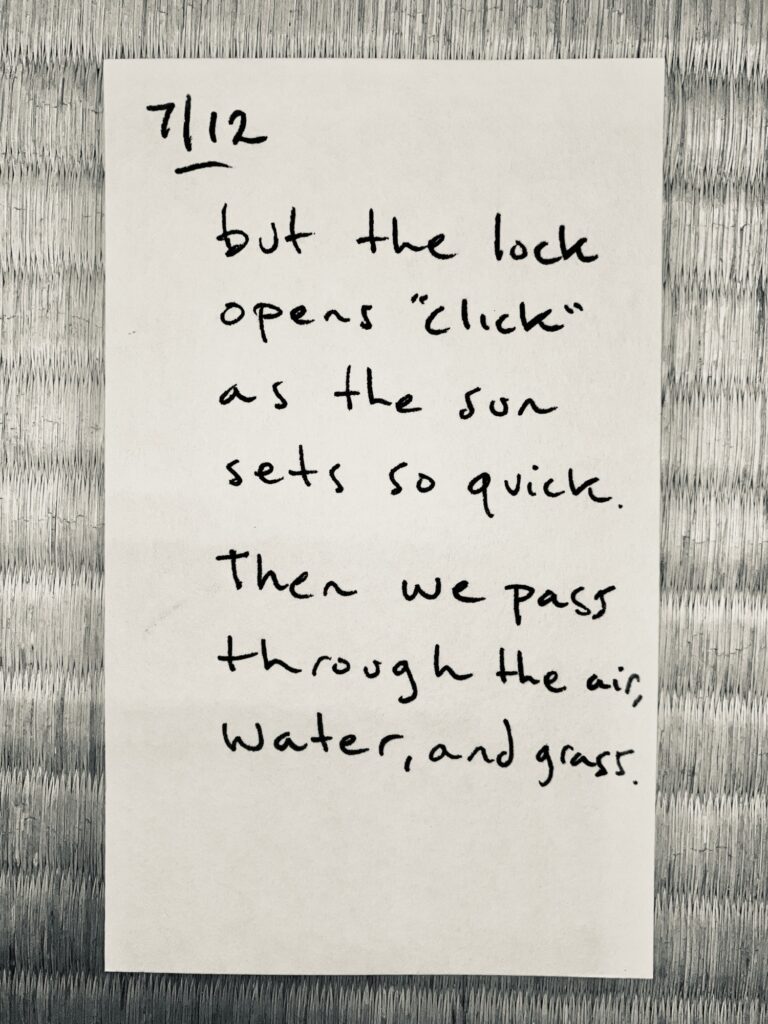 7/12
but the lock
opens "click"
as the sun
sets so quick.
Then we pass
through the air,
water, and grass.